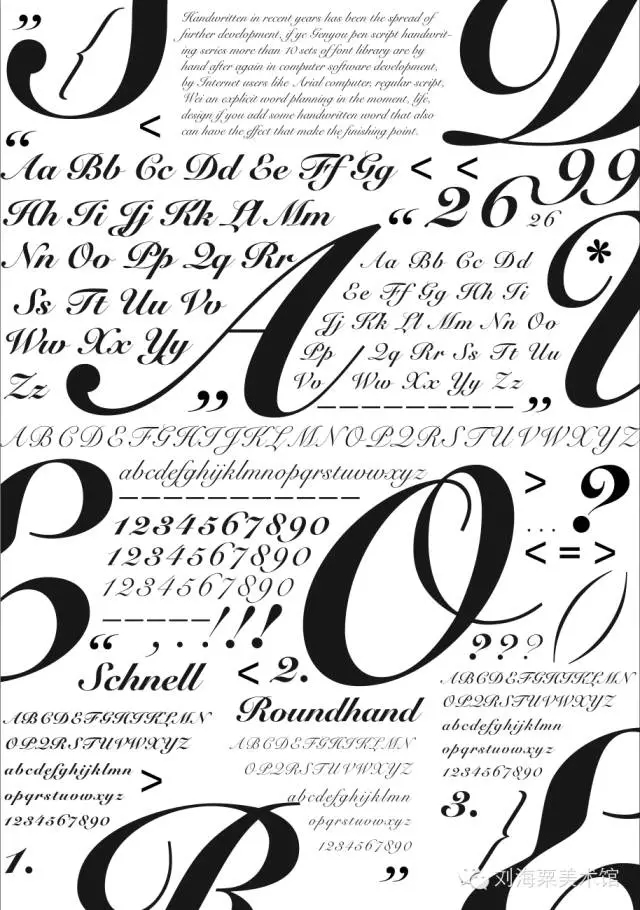 ”
J
{
Handwritten in recent years has been the spread of
further development, if ye Genyou pen script handwrit-
ing series more than 10 sets of font library are by
hand after again in computer software development,
by Internet users like Arial computer, regular script,
Wei an explicit word planning in the moment, life,
design if you add some handwritten word that also
can have the effect that make the finishing point.
D
<
“
Aa Bb Cc Dd Ee Ff Gg < <
99
Hh Ii Jj Kk Ll Mm
“ 26 26
Nn Oo Pp Qq Rr
Ss Tt Uu Vv
Ww Xx Yy
Zz
A
”
Aa Bb Cc Dd
Ee Ff Gg Hh Ii
Jj Kk Ll Mm Nn Oo
Pp / Qq Rr Ss Tt Uu
Vv Ww Xx Yy Zz
—————————— ”
*
ABCDEFGHIJKLMNOPQRSTUVWXYZ
abcdefghijklmnopqrstuvwxyz
————————————
1234567890
1234567890
1234567890
—————!!!
“ , . .
B
O
>
... ?
< = >
???
()
Schnell
< 2.
Roundhand
ABCDEFGHIJKLMN
OPQRSTUVWXYZ
abcdefghijklmn
opqrstuvwxyz
1234567890
>
1.
ABCDEFGHIJKLMN
OPQRSTUVWXYZ
abcdefghijklmn
opqrstuvwxyz
1234567890
”
ABCDEFGHIJKLMN
OPQRSTUVWXYZ
abcdefghijklmn
opqrstuvwxyz
1234567890
3.
{
R
刘海粟美术馆